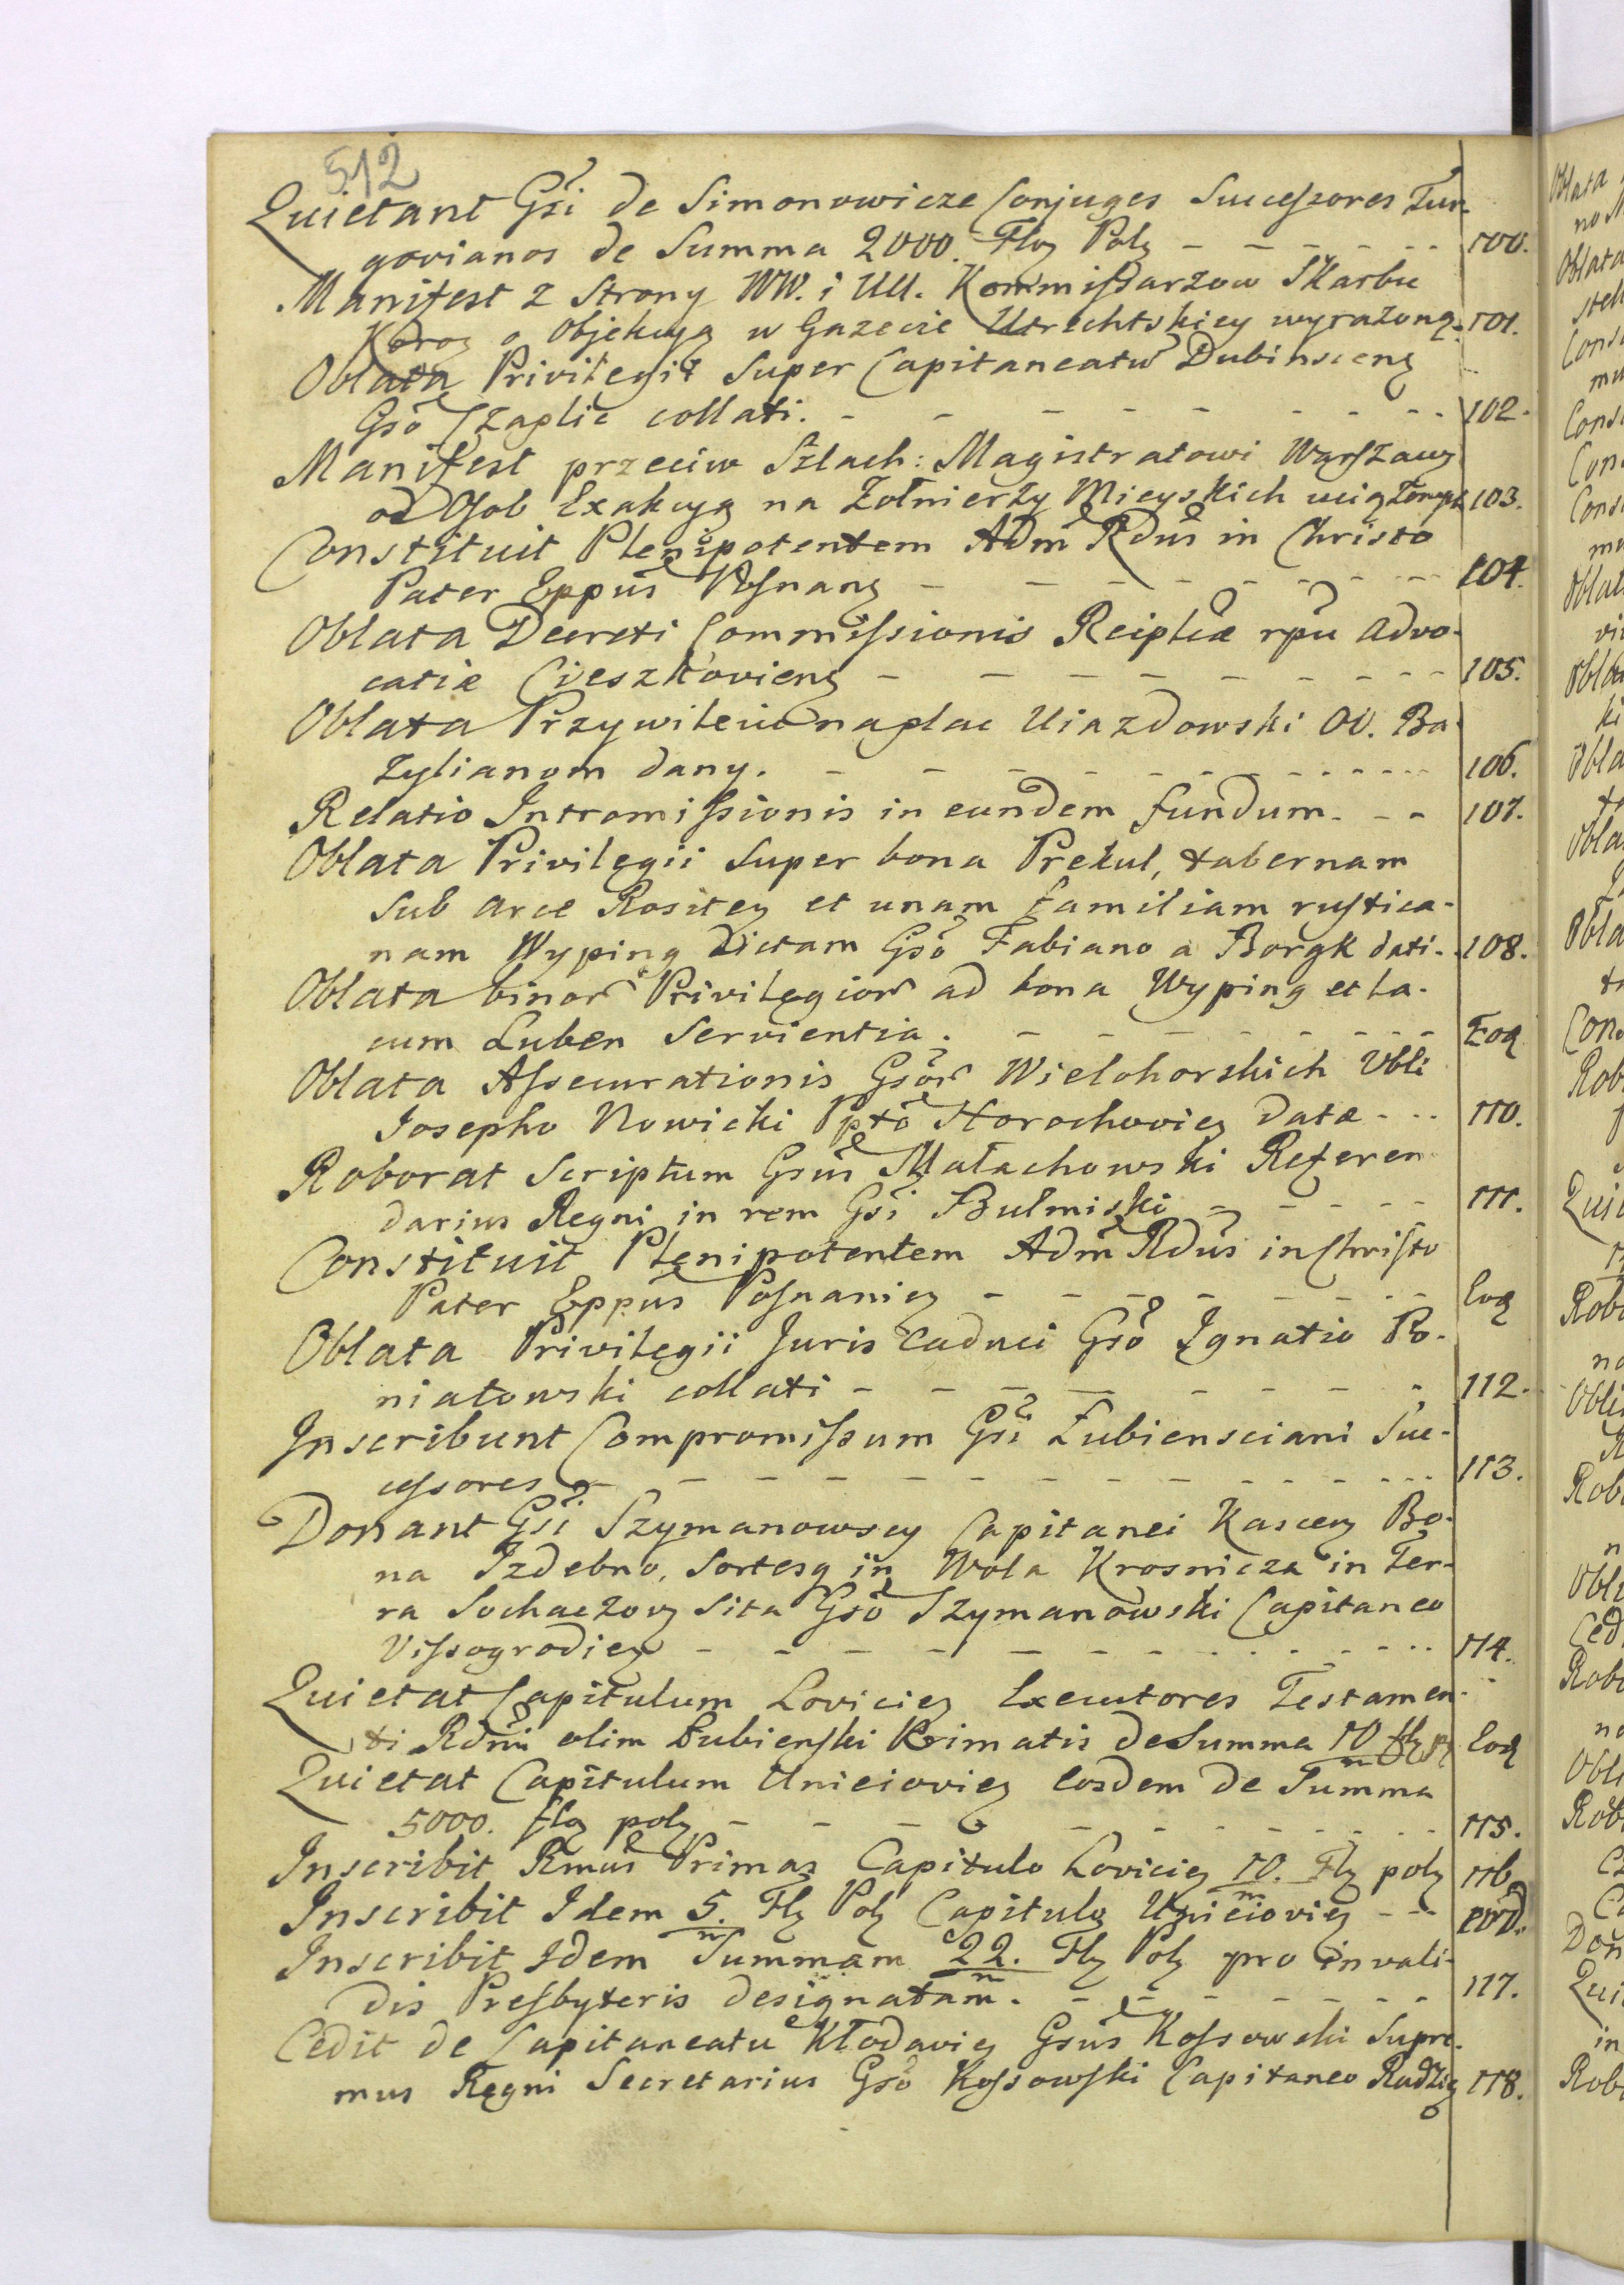 512
Quietant Gsi de Simonowicze Conjuges Successores Tur-
govianos de Summa 2000. Flor Pol - - - - - - 100.
Manifest z Strony WW. i UU. Kommissarzow Skarbu
Koron o Objekcyą w Gazecie Utrechtskiey wyrażoną. 101.
Oblata Privilegii Super Capitaneatu Dubinscen
Gso Czaplic collati. - - - - - - - - - 102.
Manifest przeciw Szlach: Magistratowi Warszaw
od Osob Exakcyą na Żołnierzy Mieyskich uciążonych 103.
Constituit Plenipotentem Adm Rdus in Christo
Pater Eppus Posnan - - - - - - - - 104.
Oblata Decreti Commissionis Reiplicæ rpu Advo-
catiæ Cieszkovien - - - - - - - - 105.
Oblata Przywileiu na plac Uiazdowski OO. Ba-
zylianom dany. - - - - - - - - - 106.
Relatio Intromissionis in eundem fundum. - - 107.
Oblata Privilegii Super bona Prekul, tabernam
Sub arce Rositen et unam familiam rustica-
nam Wyping dictam Gso Fabiano a Borgk dati. 108.
Oblata binor Privilegior ad bona Wyping et la-
cum Luben Servientia. - - - - - - - - Eoq
Oblata Assecurationis Gsor Wielohorskich Vbli
Josepho Nowicki Ppto Horochovien data - - 110.
Roborat Scriptum Gsus Małachowski Referen
darius Regni in rem Gsi Bulmiski - - - - 111.
Constituit Plenipotentem Adm Rdus in Christo
Pater Eppus Posnanien - - - - - - - - Eoq
Oblata Privilegii Juris Caduci Gso Ignatio Po-
niatowski collati - - - - - - - - 112.
Inscribunt Compromissum Gsi Łubiensciani Suc-
cessores - - - - - - - - - - - 113.
Donant Gsi Szymanowscy Capitanei Kascen Bo-
na Izdebno, Sortesq in Wola Krosnicza in Ter-
ra Sochaczov Sita Gso Szymanowski Capitaneo
Vissogrodien - - - - - - - - - 114.
Quietat Capitulum Lovicien Executores Testamen-
ti Rdmi olim Łubienski Primatis de Summa 10/m fl p Eoq
Quietat Capitulum Unieiovien Eosdem de Summa
5000. flo pol - - - - - - - - - 115.
Inscribit Rmus Primas Capitulo Lovicien 10./m Fl pol 116
Inscribit Idem 5./m Fl Pol Capitulo Unieiovien - - eod.
Inscribit Idem Summam 22./m Fl Pol pro invali-
dis Presbyteris designatam. - - - - - - - 117.
Cedit de Capitaneatu Kłodavien Gsus Kossowski Supre-
mus Regni Secretarius Gso Kossowski Capitaneo Radzie 118.